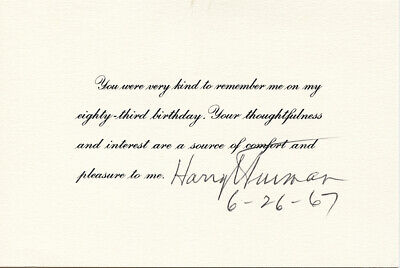 You were very kind to remember me on my
eighty-third birthday. Your thoughtfulness
and interest are a source of comfort and
pleasure to me. Harry Truman
6-26-67